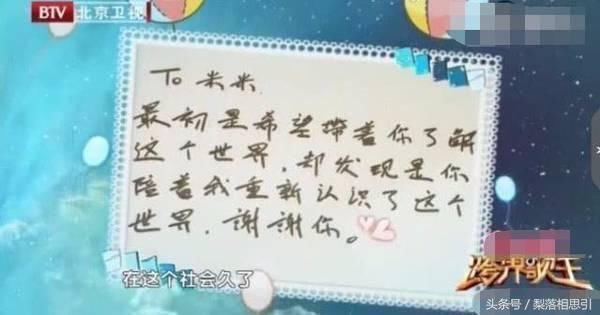 BTV 北京卫视
To 米米.
最初是希望带着你了解
这个世界,却发现是你
陪着我重新认识了这个
世界,謝謝你。
在这个社会久了
跨界歌王
头条号 / 梨落相思引